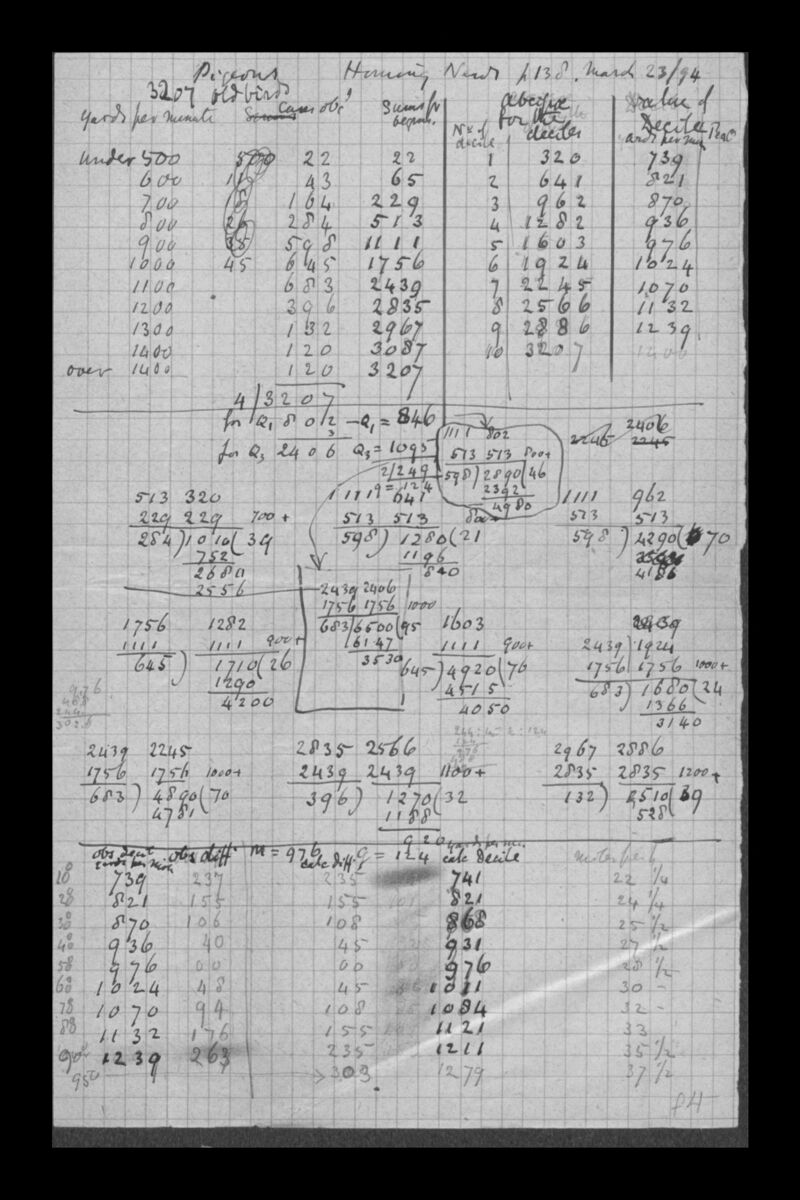 Pigeons Homing News p 138. March 23/94
3207 old birds
yards per minute Cases obsd Sums fr begins. No of decile abscissæ for the deciles Value of Decile yards per min
under 500 22 22 1 320 739
600 43 65 2 641 821
700 164 229 3 962 870
800 26 284 513 4 1282 936
900 35 598 1111 5 1603 976
1000 45 645 1756 6 1924 1024
1100 683 2439 7 2245 1070
1200 396 2835 8 2566 1132
1300 132 2967 9 2886 1239
1400 120 3087 10 3207 1400
over 1400 120 3207
4 / 3207
for Q1 802 – Q1 = 846
3
for Q3 2406 Q3 = 1095
2/249
q = 124
1111 802
513 513 800+
598) 2890 (46
2392
4980
2245 2406
2245
513 320
229 229 700+
284) 1010 (39
752
2680
2556
1111 641
513 513 800+
598) 1280 (21
1196
840
1111 962
513 513
598) 4290 ( 70
4186
1756 1282
1111 1111 900+
645) 1710 (26
1290
4200
2439 2406
1756 1756 1000
683) 6500 (95
6147
3530
1603
1111 900+
645) 4920 (76
4515
4050
2439
2439 1924
1756 1756 1000+
683) 1680 (24
1366
3140
976
2439 2245
1756 1756 1000+
683) 4890 (70
4781
2835 2566
2439 2439 1100+
396) 1270 (32
1188
920
2967 2886
2835 2835 1200+
132) 510 (39
528
obs decile yards per min obs diff m = 976 calc diff q = 124 yards per mi. calc decile
10° 739 237 235 741 22 1/4
20 821 155 155 821 24 1/4
30 870 106 108 868 25 1/2
40 936 40 45 931 27 1/2
50 976 00 00 976 28 1/2
60 1024 48 45 1021 30 –
70 1070 94 108 1084 32 –
80 1132 176 155 1121 33
90° 1239 263 235 1211 35 1/2
95° 303 1279 37 1/2